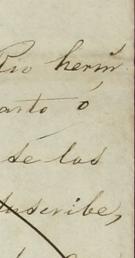 Rio herm
anto ó
se los
suscribe,